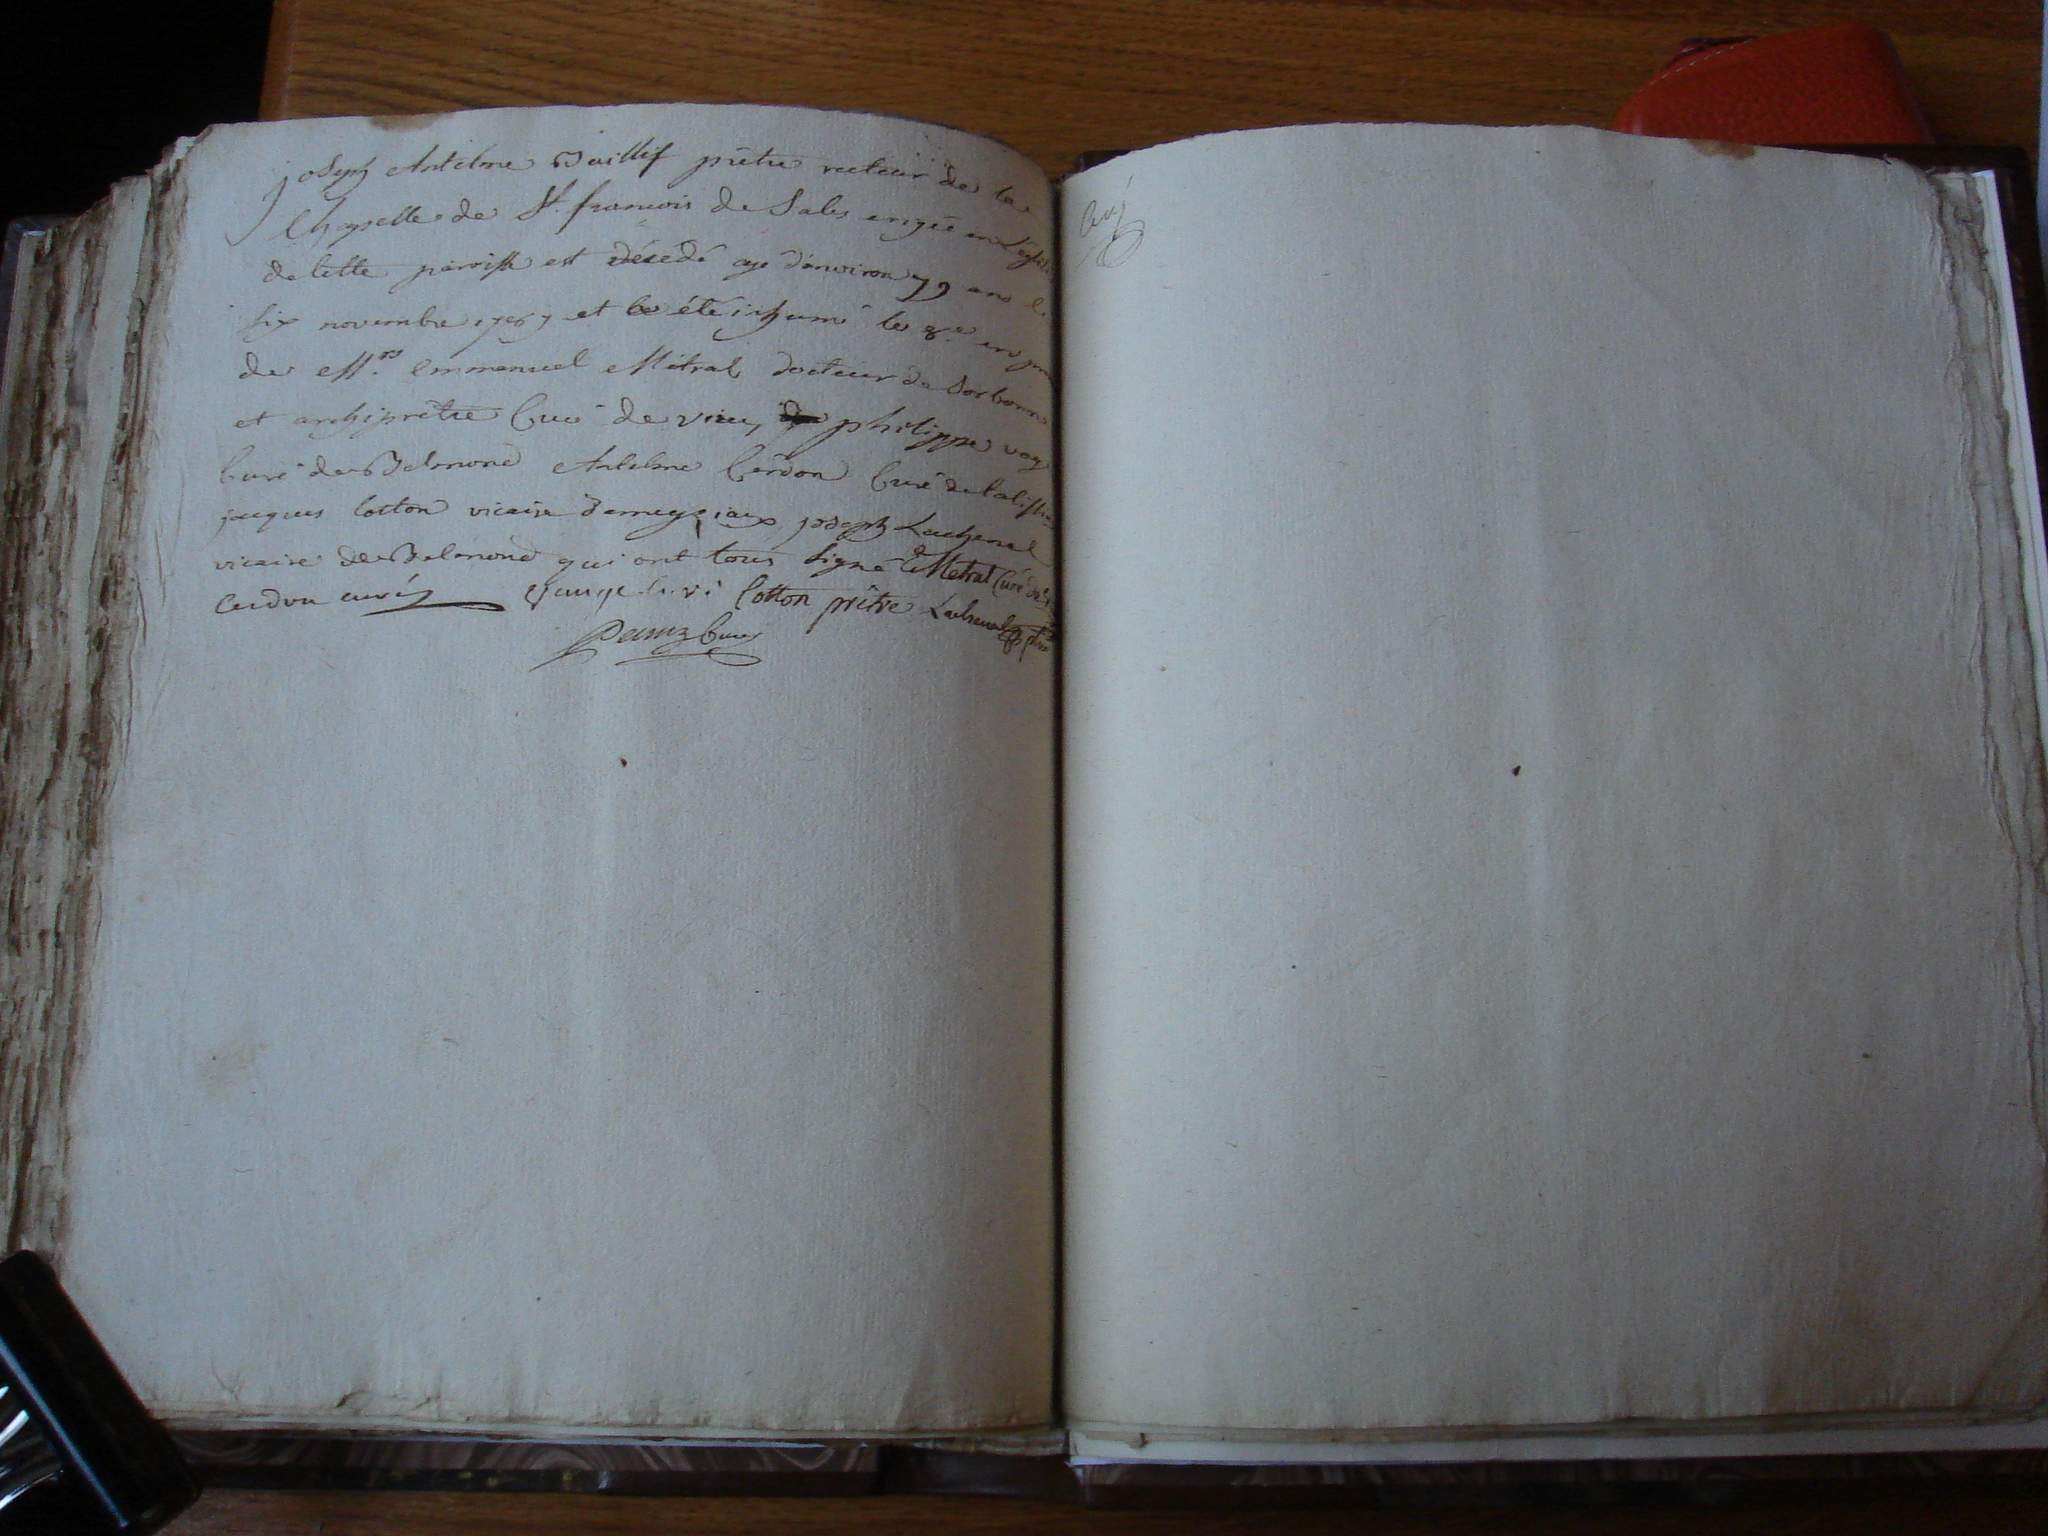 joseph Antelme Baillif prêtre recteur de la
Chapelle de St. francois de Sales erigée en L'eglise
de cette paroisse est décedé agé d'environ 79 ans le
six novembre 1787 et a été inhumé le 8e. en
de Mrs. emmanuel Métral docteur de Sorbonne
et archiprêtre Curé de vieu, philippe
Curé de Belmond Antelme Cerdon Curé de
jacques Cotton vicaire d'ameyziaux joseph Lachenal
vicaire de Belmond qui ont tous signé Metral Curé de
Cerdon curé Cotton prêtre Lachenal ptre
Curé